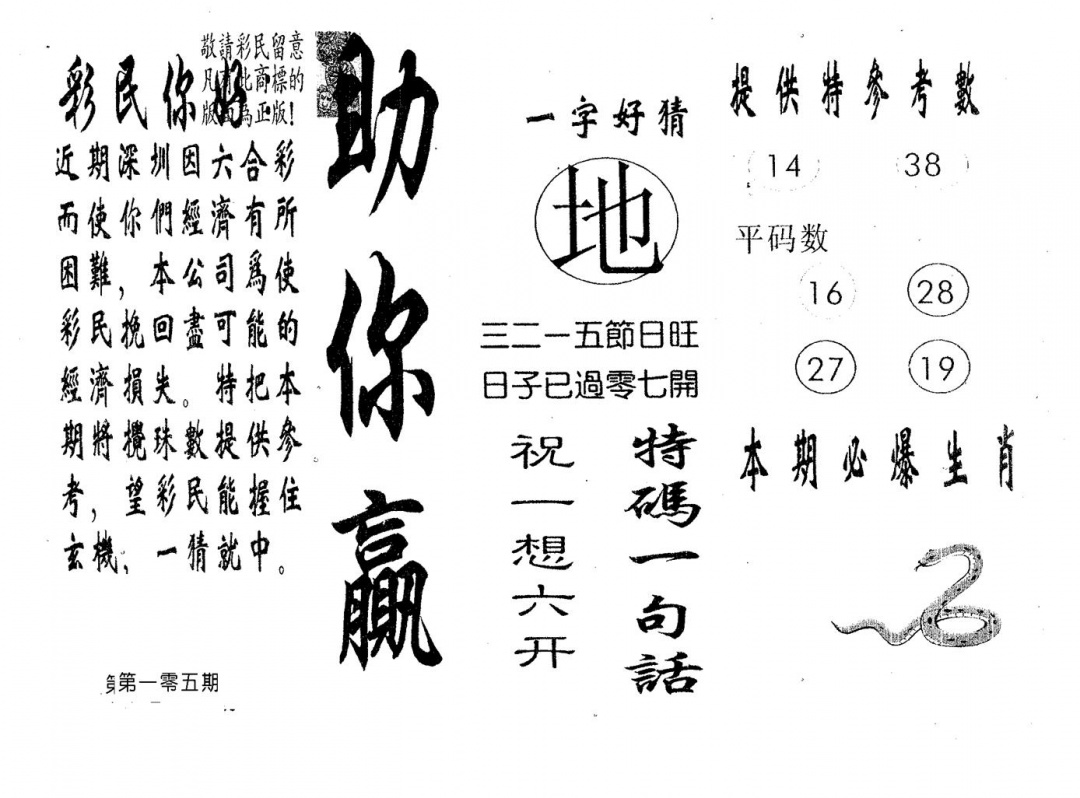 敬請彩民留意
凡有此商標的
版面為正版!
彩民你好
近期深圳因六合彩
而使你們經濟有所
困難，本公司爲使
彩民挽回盡可能的
經濟損失。特把本
期將攪珠數提供參
考，望彩民能握住
玄機、一猜就中。
第一零五期
助你贏
一字好猜
地
三二一五節日旺
日子已過零七開
特碼一句話
祝一想六开
提供特參考數
14 38
平码数
16 28
27 19
本期必爆生肖